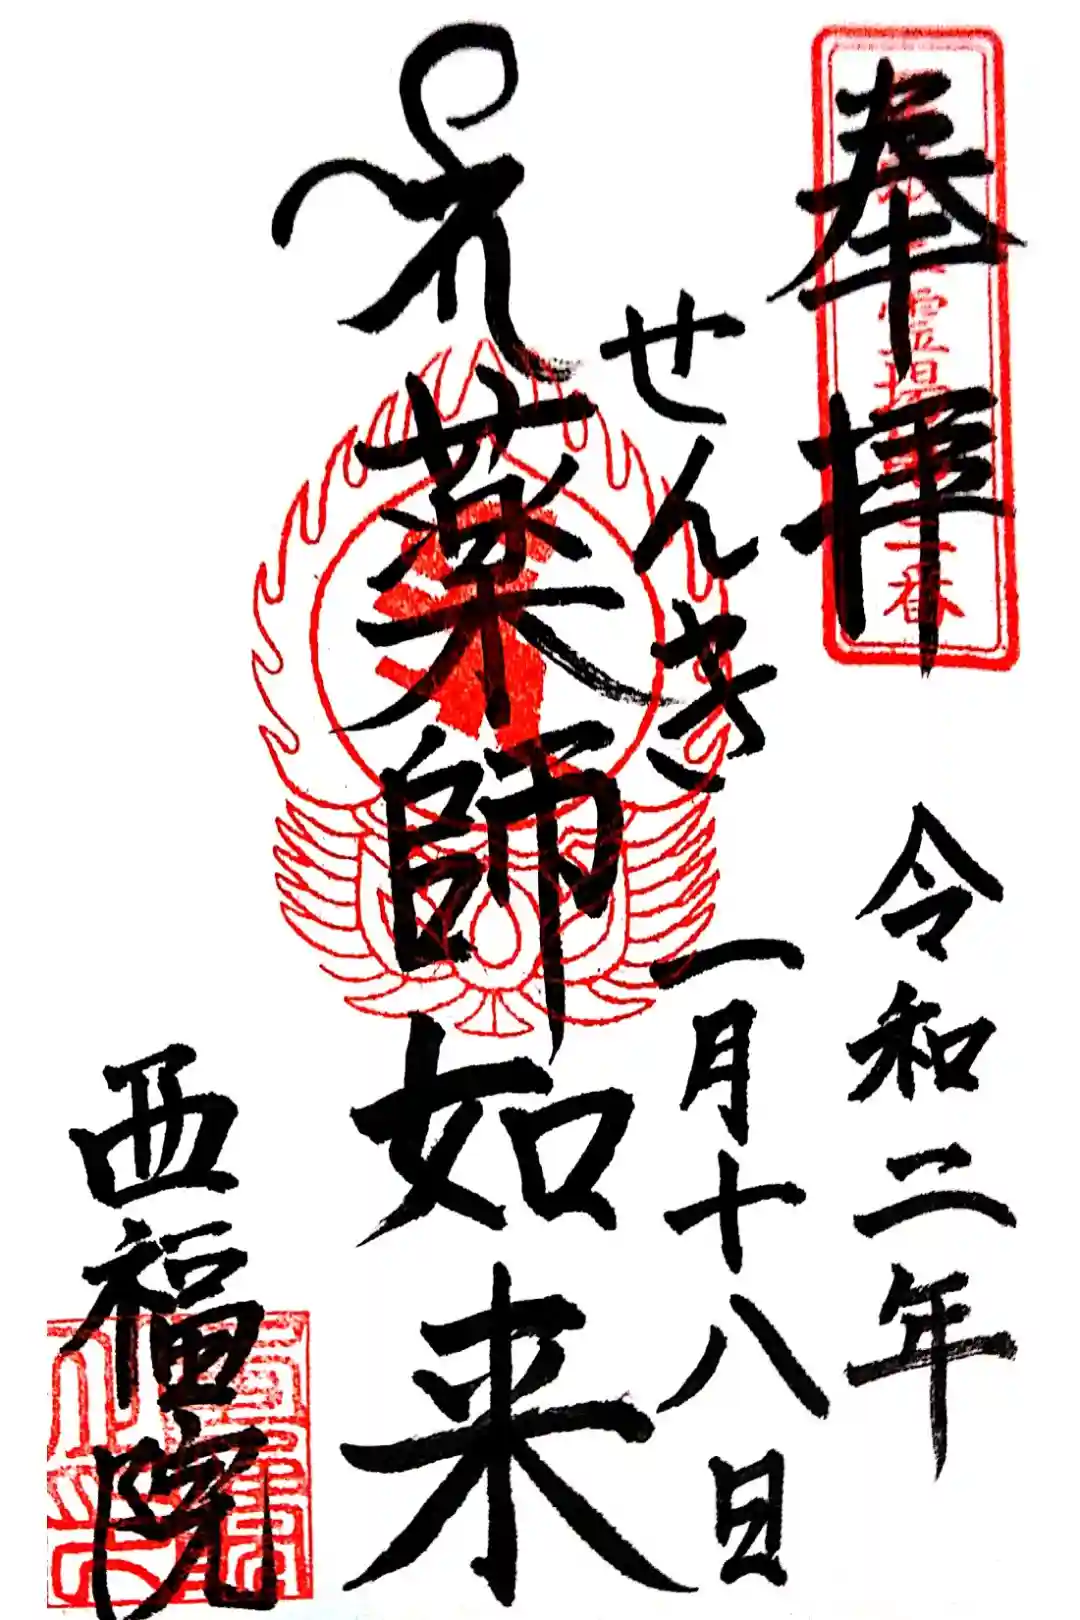 奉拝
令和二年
一月十八日
せんき
薬師如来
西福院
霊場
番